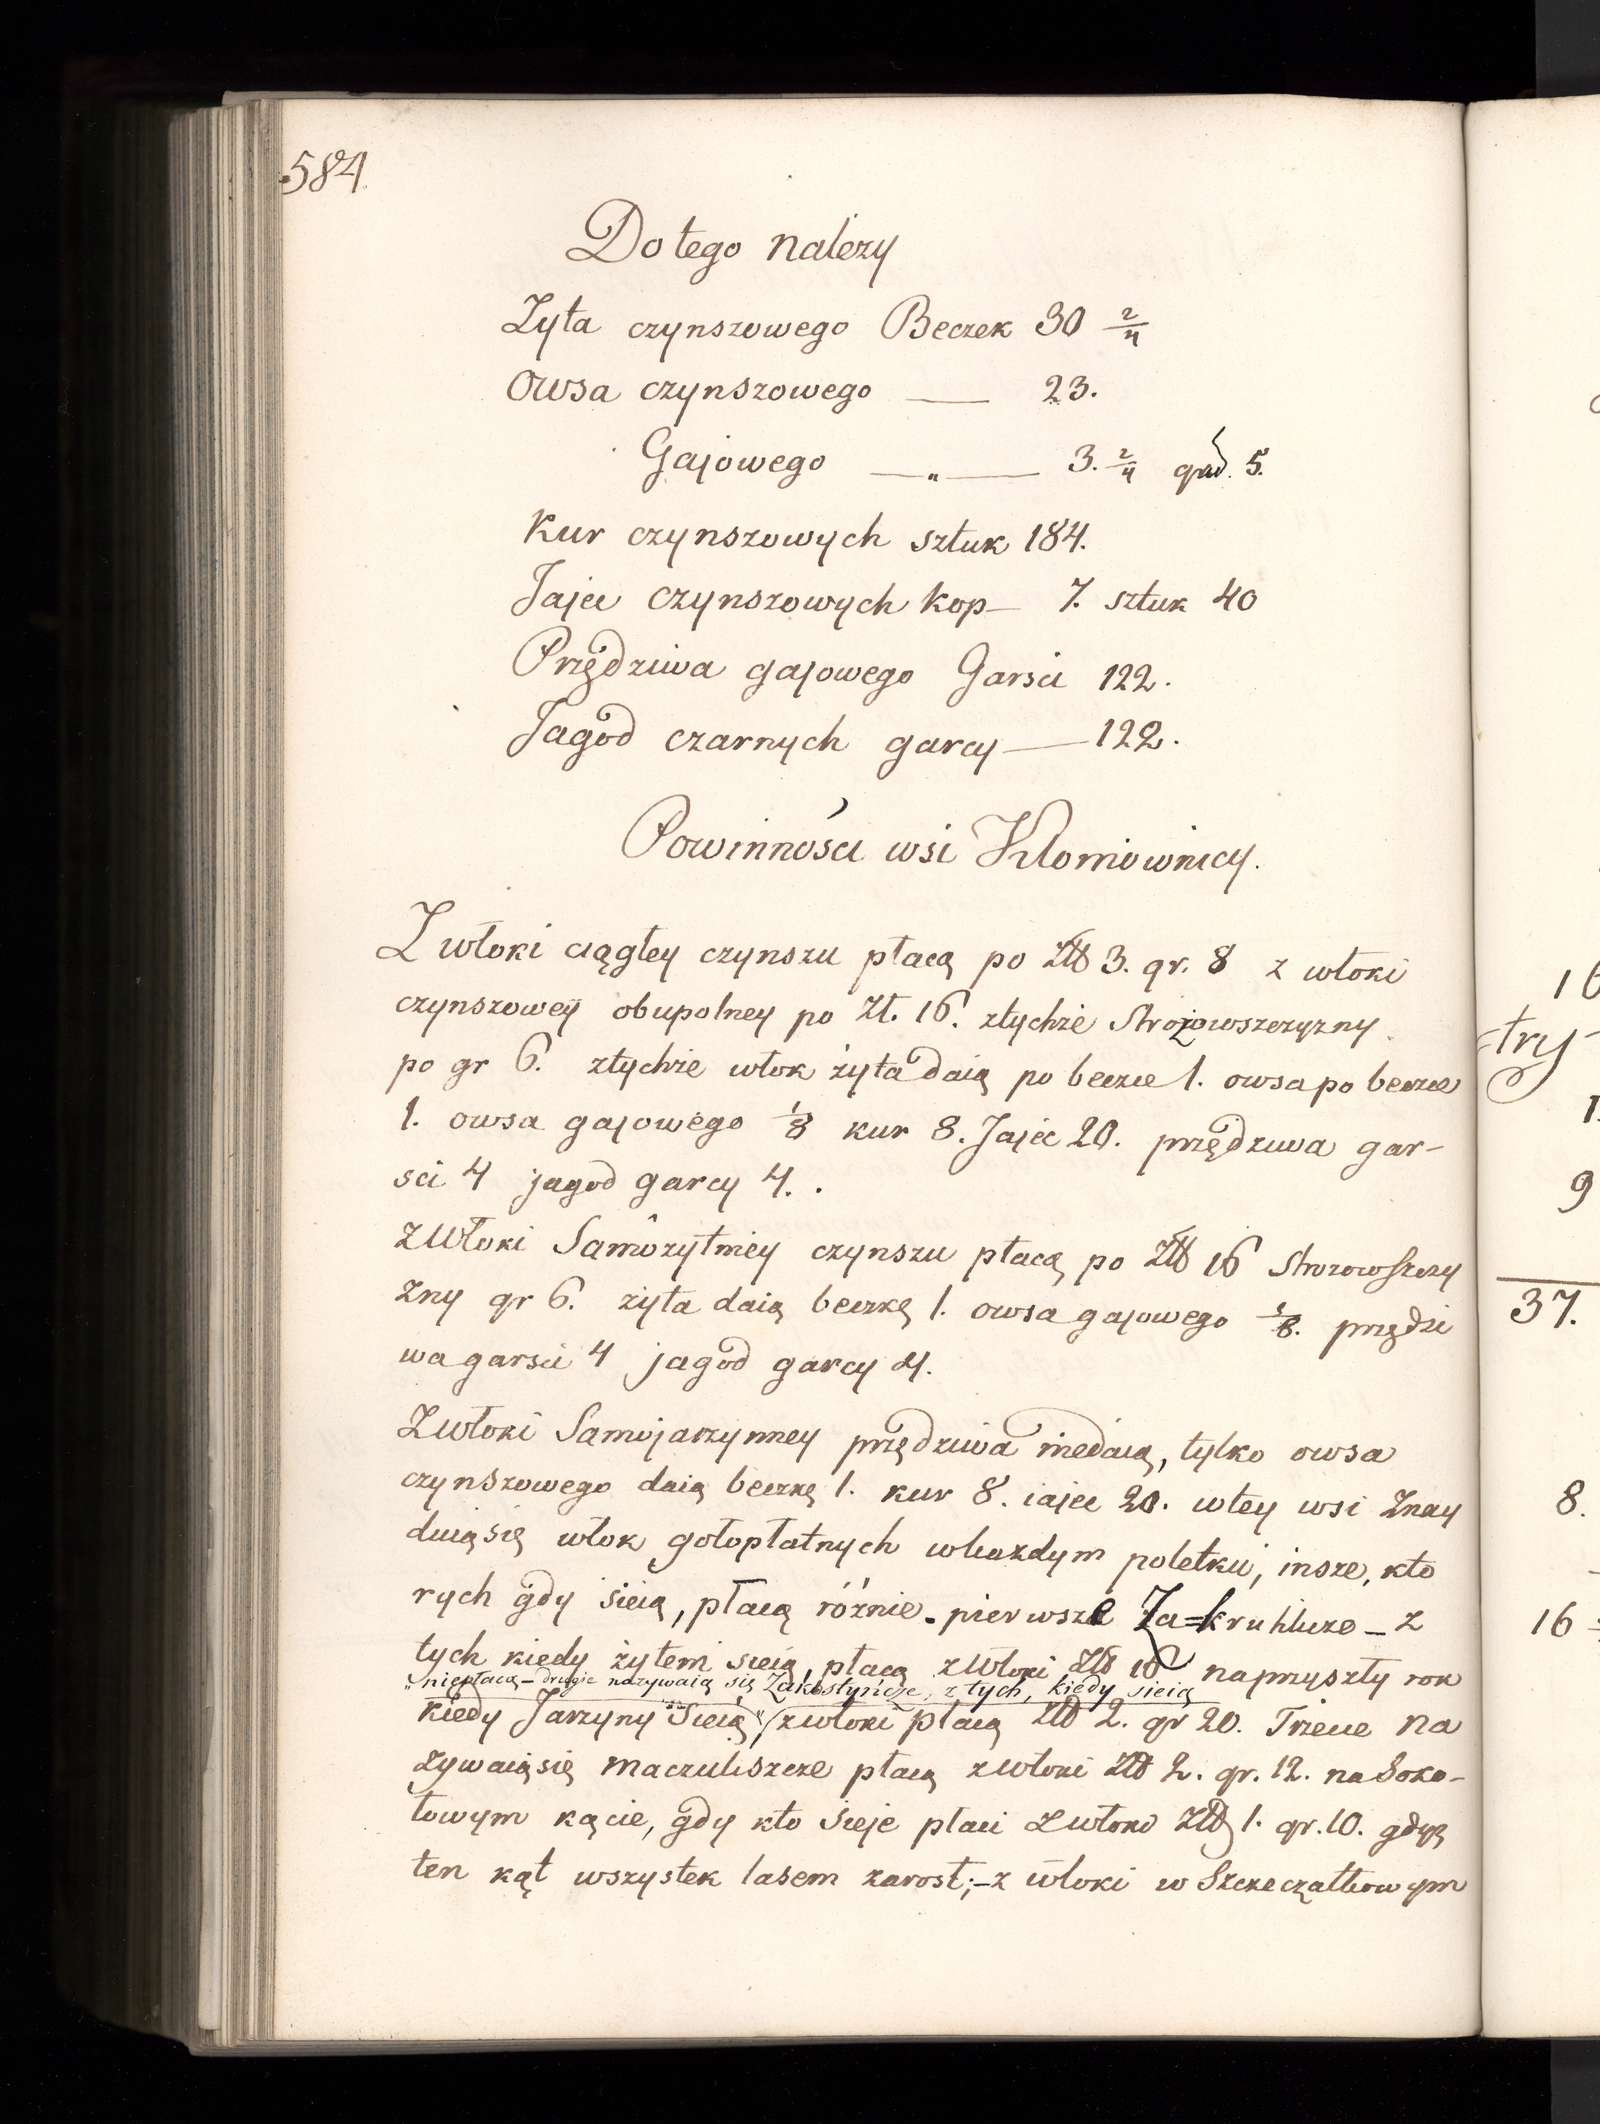 584.
Do tego nalezy
Zyta czynszowego Beczek 30 2/4
Owsa czynszowego — 23.
Gajowego — „ — 3. 2/4 5.
Kur czynszowych sztuk 184.
Jajec czynszowych kop — 7. sztuk 40
Przędziwa gajowego Garsci 122.
Jagod czarnych garcy — 122.
Powinności wsi Kłomiownicy.
Z włoki ciągłey czynszu płacą po Złł 3. gr. 8 z włoki
czynszowey obupolney po Zł. 16. ztychże Strożowszczyzny
po gr 6. ztychże włok żyta daią po beczce 1. owsa po beczce
1. owsa gajowego 1/8 kur 8. Jajec 20. przędziwa gar-
sci 4 jagod garcy 4.
Z Włoki Samożytniey czynszu płacą po Złł 16 Strozowszczy
zny gr 6. żyta daią beczkę 1. owsa gajowego 1/8. przędzi
wa garsci 4 jagod garcy 4.
Z Włoki Samojarzynney przędziwa niedaią, tylko owsa
czynszowego daią beczkę 1. kur 8. iajec 20. wtey wsi Znay
duią się włok gołopłatnych wkazdym poletku, insze, kto
rych gdy sieią, płacą różnie - pierwsze Za=kruhlicze - z
tych kiedy żytem sieią, płacą z Włoki Złł 10 naprzyszły rok
„niepłacą - drugie nazywaią się Zakostyńcze, z tych, kiedy sieią
kiedy Jarzyny Sieią," z włoki płacą Złł 2. gr 20. Trzecie na
zywaią się maczuliszcze płacą z Włoki Złł 2. gr. 12. na Soko-
łowym kącie, gdy kto sieje płaci z włoki Złł 1. gr. 10. gdyż
ten kąt wszystek lasem zarosł; - z włoki w Szczeczatkowym
try
9
37.
8.
16